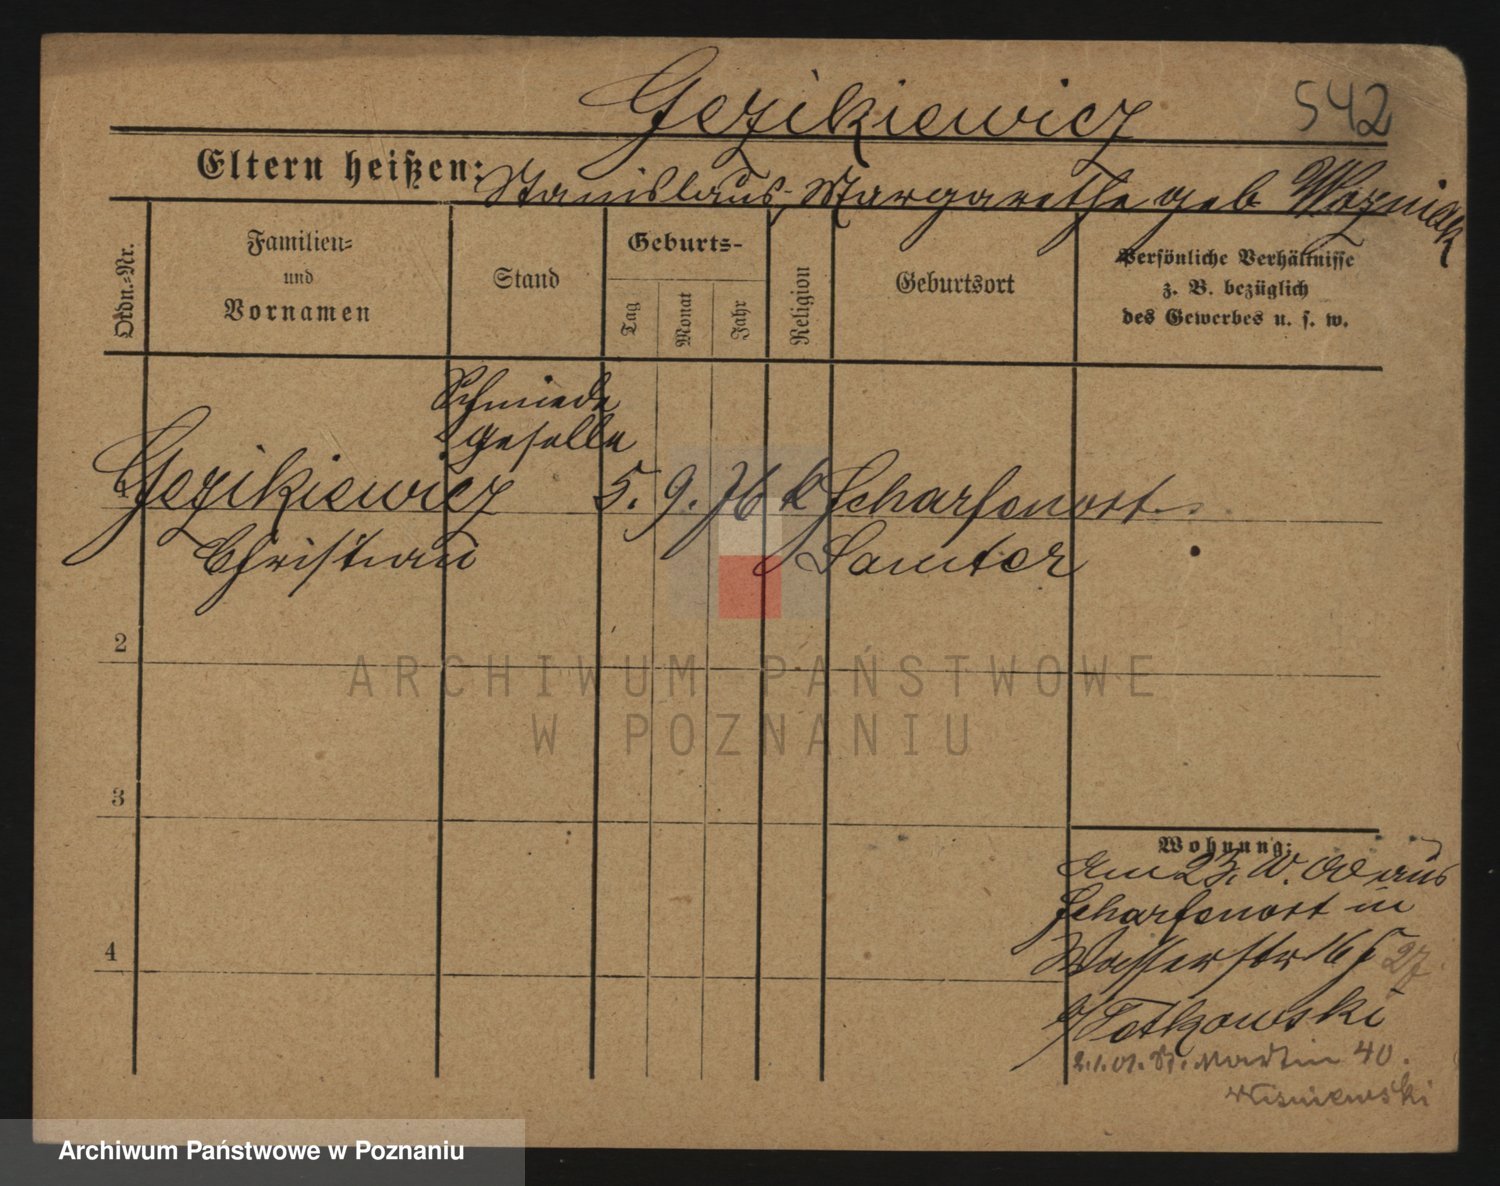 Gezikiewicz
542
Eltern heißen: Stanislaus, Margarethe geb Wozniak
Ordn.-Nr.
Familien-
und
Vornamen
Stand
Geburts-
Tag
Monat
Jahr
Religion
Geburtsort
Persönliche Verhältnisse
z. B. bezüglich
des Gewerbes u. s. w.
Schmiede
geselle
1 Gezikiewicz 5. 9. 76 k Scharfenort
Christian Samter
2
ARCHIWUM PAŃSTWOWE
W POZNANIU
3
Wohnung:
Am 23. aus
Scharfenort in
4
Wasserstr 16 27
Totkowski
2.1.01. St. Martin 40.
Wisniewski
Archiwum Państwowe w Poznaniu